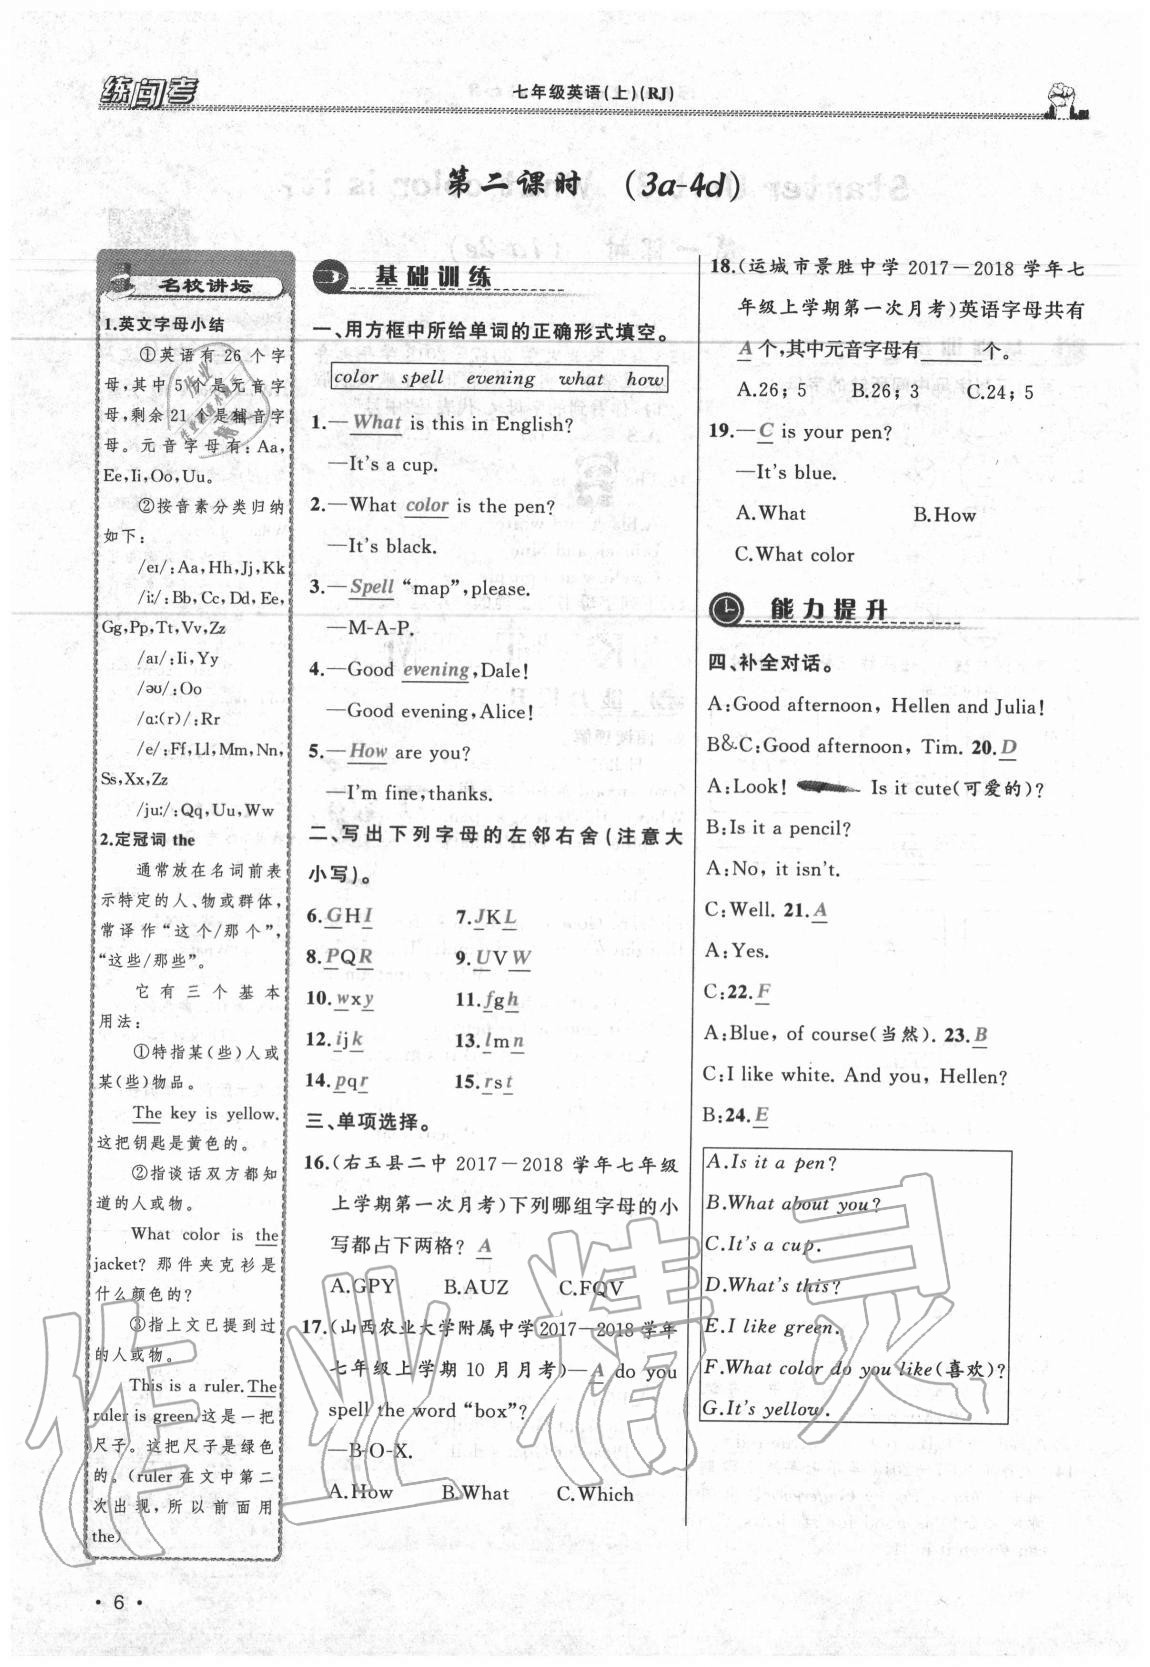 练闯考
七年级英语(上)(RJ)
第二课时 (3a-4d)
名校讲坛
1.英文字母小结
①英语有 26 个字
母,其中 5 个是元音字
母,剩余 21 个是辅音字
母。元音字母有:Aa,
Ee,Ii,Oo,Uu。
②按音素分类归纳
如下:
/eɪ/:Aa,Hh,Jj,Kk
/iː/:Bb,Cc,Dd,Ee,
Gg,Pp,Tt,Vv,Zz
/aɪ/:Ii,Yy
/əʊ/:Oo
/ɑː(r)/:Rr
/e/:Ff,Ll,Mm,Nn,
Ss,Xx,Zz
/juː/:Qq,Uu,Ww
2.定冠词 the
通常放在名词前表
示特定的人、物或群体,
常译作“这个/那个”,
“这些/那些”。
它有三个基本
用法:
①特指某(些)人或
某(些)物品。
The key is yellow.
这把钥匙是黄色的。
②指谈话双方都知
道的人或物。
What color is the
jacket? 那件夹克衫是
什么颜色的?
③指上文已提到过
的人或物。
This is a ruler. The
ruler is green. 这是一把
尺子。这把尺子是绿色
的。(ruler 在文中第二
次出现,所以前面用
the)
基础训练
一、用方框中所给单词的正确形式填空。
color spell evening what how
1.—What is this in English?
—It's a cup.
2.—What color is the pen?
—It's black.
3.—Spell “map”, please.
—M-A-P.
4.—Good evening, Dale!
—Good evening, Alice!
5.—How are you?
—I'm fine, thanks.
二、写出下列字母的左邻右舍(注意大
小写)。
6. G H I 7. J K L
8. P Q R 9. U V W
10. w x y 11. f g h
12. i j k 13. l m n
14. p q r 15. r s t
三、单项选择。
16.(右玉县二中 2017-2018 学年七年级
上学期第一次月考)下列哪组字母的小
写都占下两格? A
A.GPY B.AUZ C.FQV
17.(山西农业大学附属中学 2017-2018 学年
七年级上学期 10 月月考)—A do you
spell the word “box”?
—B-O-X.
A.How B.What C.Which
18.(运城市景胜中学 2017-2018 学年七
年级上学期第一次月考)英语字母共有
A 个,其中元音字母有______个。
A.26; 5 B.26; 3 C.24; 5
19.—C is your pen?
—It's blue.
A.What B.How
C.What color
能力提升
四、补全对话。
A:Good afternoon, Hellen and Julia!
B&C:Good afternoon, Tim. 20. D
A:Look! Is it cute(可爱的)?
B:Is it a pencil?
A:No, it isn't.
C:Well. 21. A
A:Yes.
C:22. F
A:Blue, of course(当然). 23. B
C:I like white. And you, Hellen?
B:24. E
A.Is it a pen?
B.What about you?
C.It's a cup.
D.What's this?
E.I like green.
F.What color do you like(喜欢)?
G.It's yellow.
作业精灵
· 6 ·